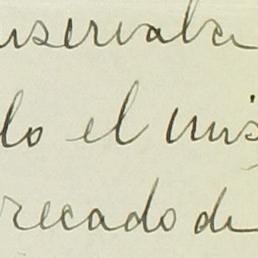 nservaba
lo el mis
recado de